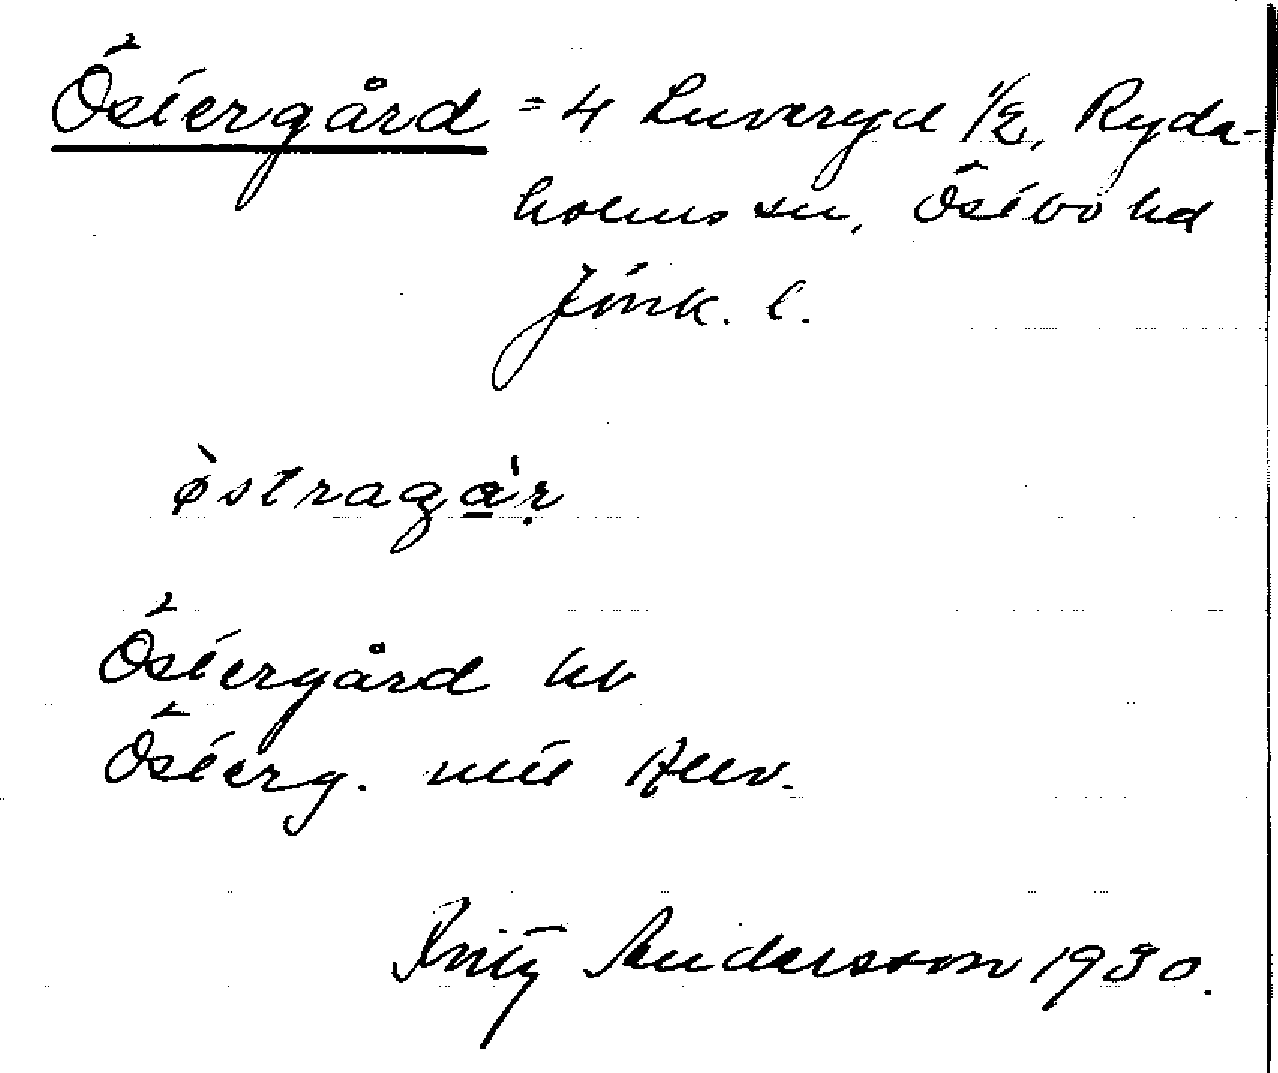 Östergård = 4 Luveryd 1/2, Ryda-
holms sn, Östbo hd
Jönk. l.
östragår
Östergård kb
Österg. utt
Fritz Andersson 1930.